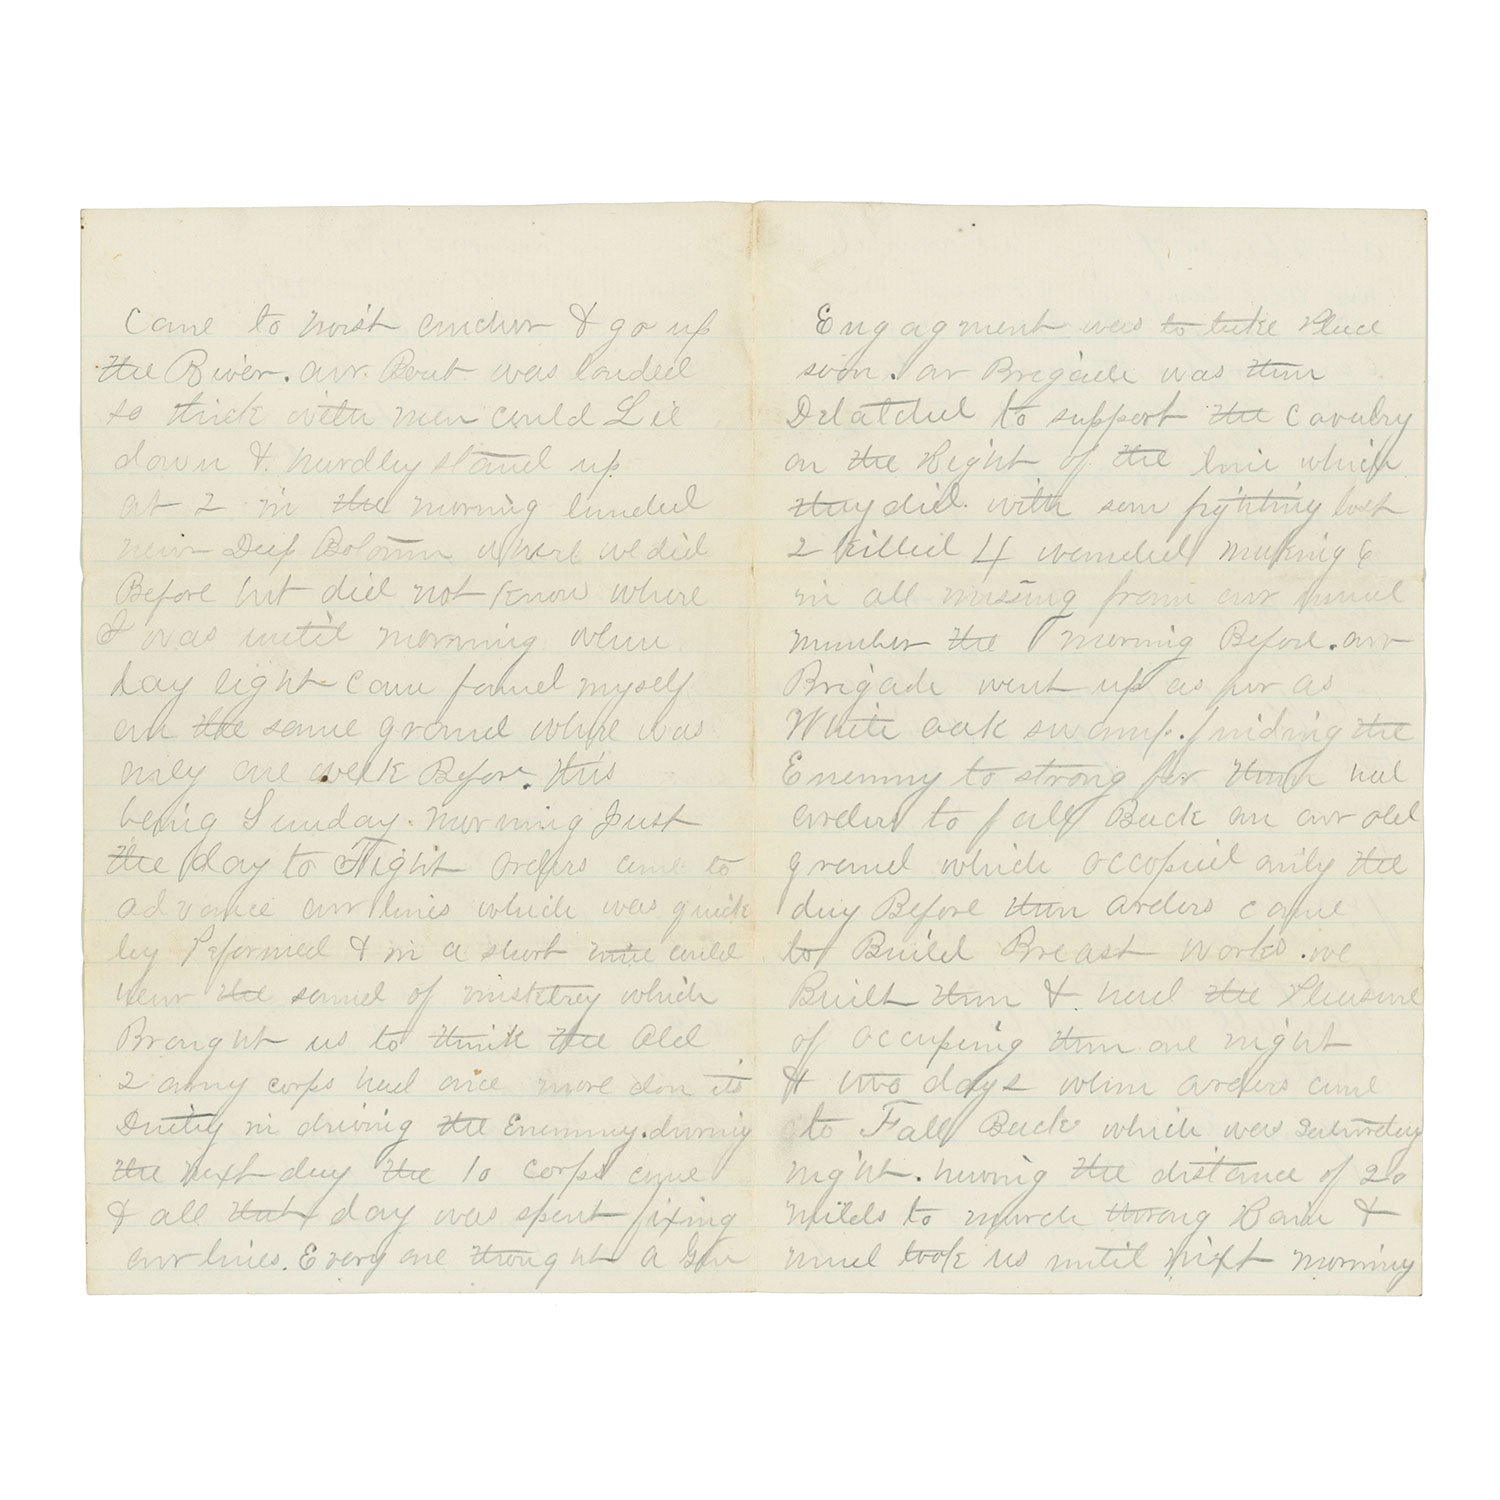 Came to hoist anchor & go up
the River. our Boat was loaded
so thick with men could Lie
down & hardley stand up
at 2 in the morning landed
near Deep Bolomn where we did
Before but did not know where
I was until morning when
day light Came found myself
on the same ground where was
only one week Before. this
being Sunday. morning Just
the day to Fight orders came to
advance our lines which was quick
ley Peformed & in a short time could
hear the sound of misketrey which
Brought us to think the Old
2 army corps had once more don its
Duitey in driving the Enemmy. during
the next day the 10 corps came
& all that day was spent fixing
our lines. Every one thought a Gen
Engagment was to take Place
soon. our Brigade was then
Detatched to support the Cavalry
on the Right of the line which
they did. with som fighting lost
2 killed 4 wounded making 6
in all missing from our small
number the morning Before. our
Brigade went up as far as
White oak swamp. finding the
Enemmy to strong for them had
orders to fall Back on our old
ground which occopied only the
day Before then orders came
to Build Breast works. we
Built them & had the Pleasure
of occuping them one night
& two days when orders came
to Fall Back which was saturday
night. having the distance of 20
milds to march throug Rain &
mud took us until next morning